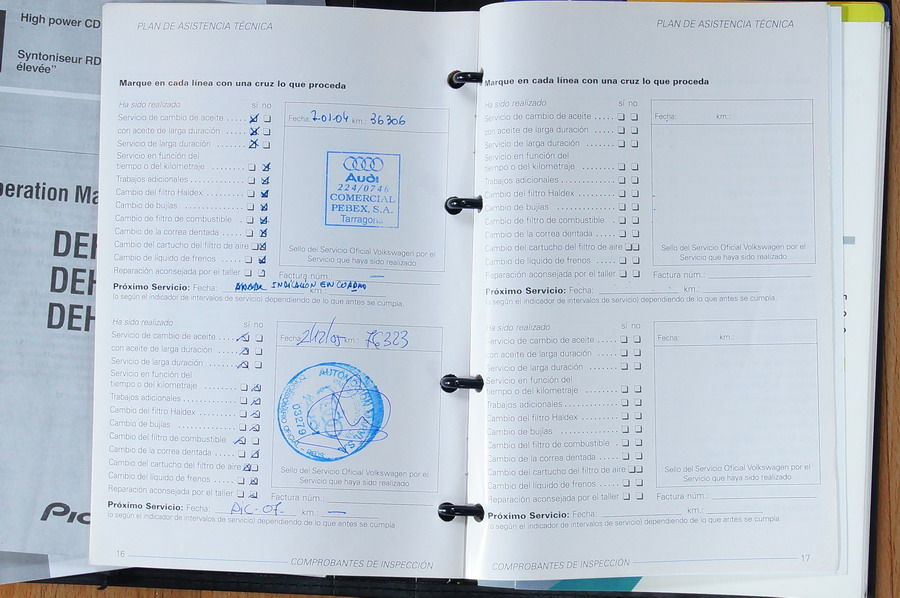 High power CD
Syntoniseur RD
élevée"
peration Ma
DEH
DEH
DEH
PIC
PLAN DE ASISTENCIA TÉCNICA
Marque en cada línea con una cruz lo que proceda
Ha sido realizado sí no
Servicio de cambio de aceite
con aceite de larga duración
Servicio de larga duración
Servicio en función del
tiempo o del kilometraje
Trabajos adicionales
Cambio del filtro Haldex
Cambio de bujías
Cambio de filtro de combustible
Cambio de la correa dentada
Cambio del cartucho del filtro de aire
Cambio de líquido de frenos
Reparación aconsejada por el taller
Fecha: 7.01.04 km.: 36306
Audi
224/0746
COMERCIAL
PEBEX, S.A.
Tarragona
Sello del Servicio Oficial Volkswagen por el
Servicio que haya sido realizado
Factura núm.: —
Próximo Servicio: Fecha: INDICACIÓN EN CUADRO
km.:
(o según el indicador de intervalos de servicio) dependiendo de lo que antes se cumpla.
Ha sido realizado sí no
Servicio de cambio de aceite
con aceite de larga duración
Servicio de larga duración
Servicio en función del
tiempo o del kilometraje
Trabajos adicionales
Cambio del filtro Haldex
Cambio de bujías
Cambio del filtro de combustible
Cambio de la correa dentada
Cambio del cartucho del filtro de aire
Cambio de líquido de frenos
Reparación aconsejada por el taller
Fecha: 2/12/05 km.: 76323
03279
Sello del Servicio Oficial Volkswagen por el
Servicio que haya sido realizado
Factura núm.:
Próximo Servicio: Fecha: DIC-07- km.: —
(o según el indicador de intervalos de servicio) dependiendo de lo que antes se cumpla
16
COMPROBANTES DE INSPECCIÓN
PLAN DE ASISTENCIA TÉCNICA
Marque en cada línea con una cruz lo que proceda
Ha sido realizado sí no
Servicio de cambio de aceite
con aceite de larga duración
Servicio de larga duración
Servicio en función del
tiempo o del kilometraje
Trabajos adicionales
Cambio del filtro Haldex
Cambio de bujías
Cambio de filtro de combustible
Cambio de la correa dentada
Cambio del cartucho del filtro de aire
Cambio de líquido de frenos
Reparación aconsejada por el taller
Fecha: km.:
Sello del Servicio Oficial Volkswagen por el
Servicio que haya sido realizado
Factura núm.:
Próximo Servicio: Fecha: km.:
(o según el indicador de intervalos de servicio) dependiendo de lo que antes se cumpla.
Ha sido realizado sí no
Servicio de cambio de aceite
con aceite de larga duración
Servicio de larga duración
Servicio en función del
tiempo o del kilometraje
Trabajos adicionales
Cambio del filtro Haldex
Cambio de bujías
Cambio del filtro de combustible
Cambio de la correa dentada
Cambio del cartucho del filtro de aire
Cambio del líquido de frenos
Reparación aconsejada por el taller
Fecha: km.:
Sello del Servicio Oficial Volkswagen por el
Servicio que haya sido realizado
Factura núm.:
Próximo Servicio: Fecha: km.:
(o según el indicador de intervalos de servicio) dependiendo de lo que antes se cumpla.
COMPROBANTES DE INSPECCIÓN
17